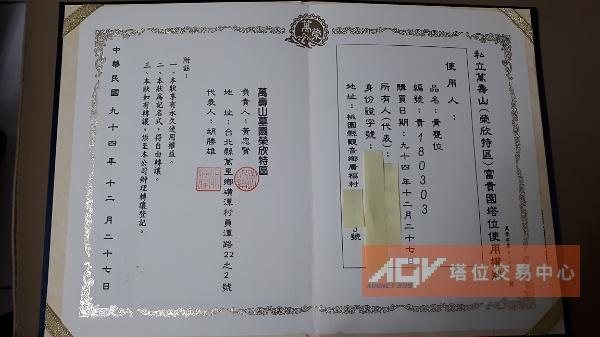 萬榮
私立萬壽山(榮欣特區)富貴園塔位使用權狀
使用人：
品名：貴寶位
編號：貴180303
購買日期：九十四年十二月二十七日
所有人(代表)：
身份證字號：
地址：桃園縣觀音鄉廣福村
號
萬壽山墓園榮欣特區
負責人：黃忠賢
地址：台北縣萬里鄉磺潭村員潭路22之2號
代表人：胡勝雄
附註：
一、本狀享有永久使用權益。
二、本狀為記名式，得自由轉讓。
三、本狀如有轉讓，須至本公司辦理轉讓登記。
中華民國九十四年十二月二十七日
AGV
AGENCY 995
塔位交易中心